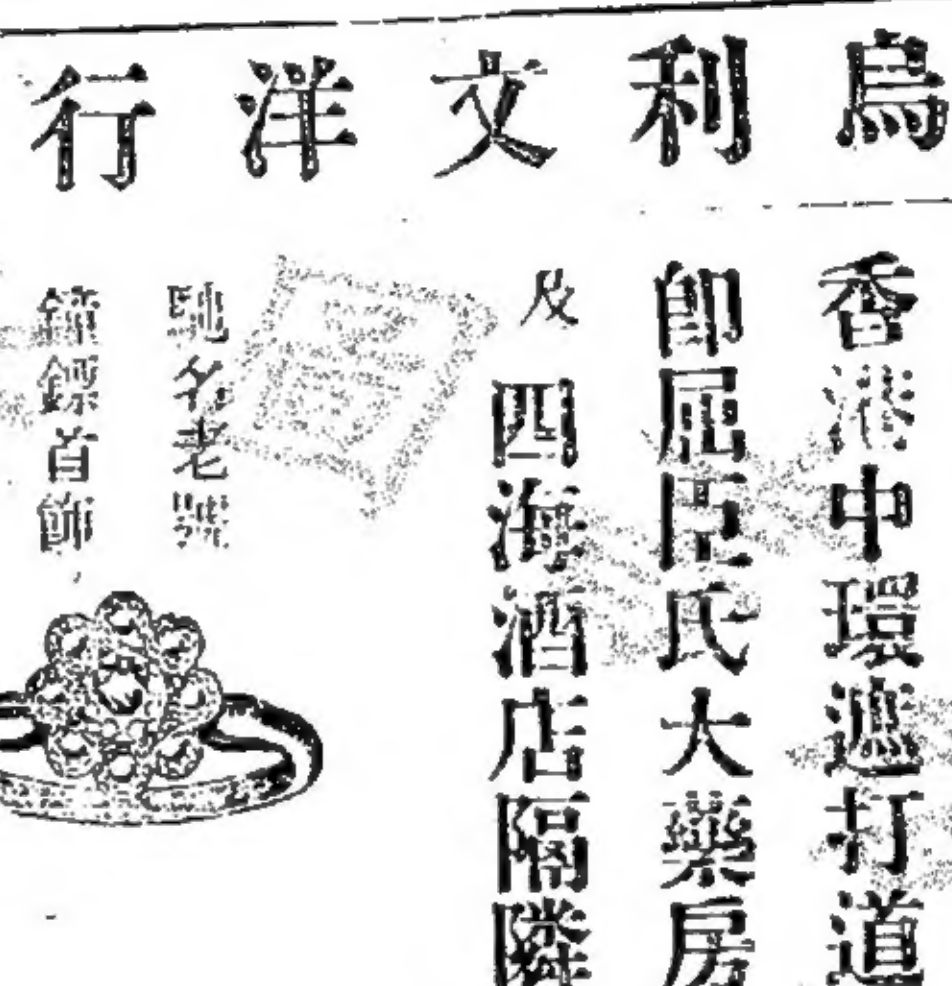 烏利文洋行
香港中環遮打道
卽屈臣氏大藥房
及四海酒店隔隣
馳名老號
鐘鏢首飾